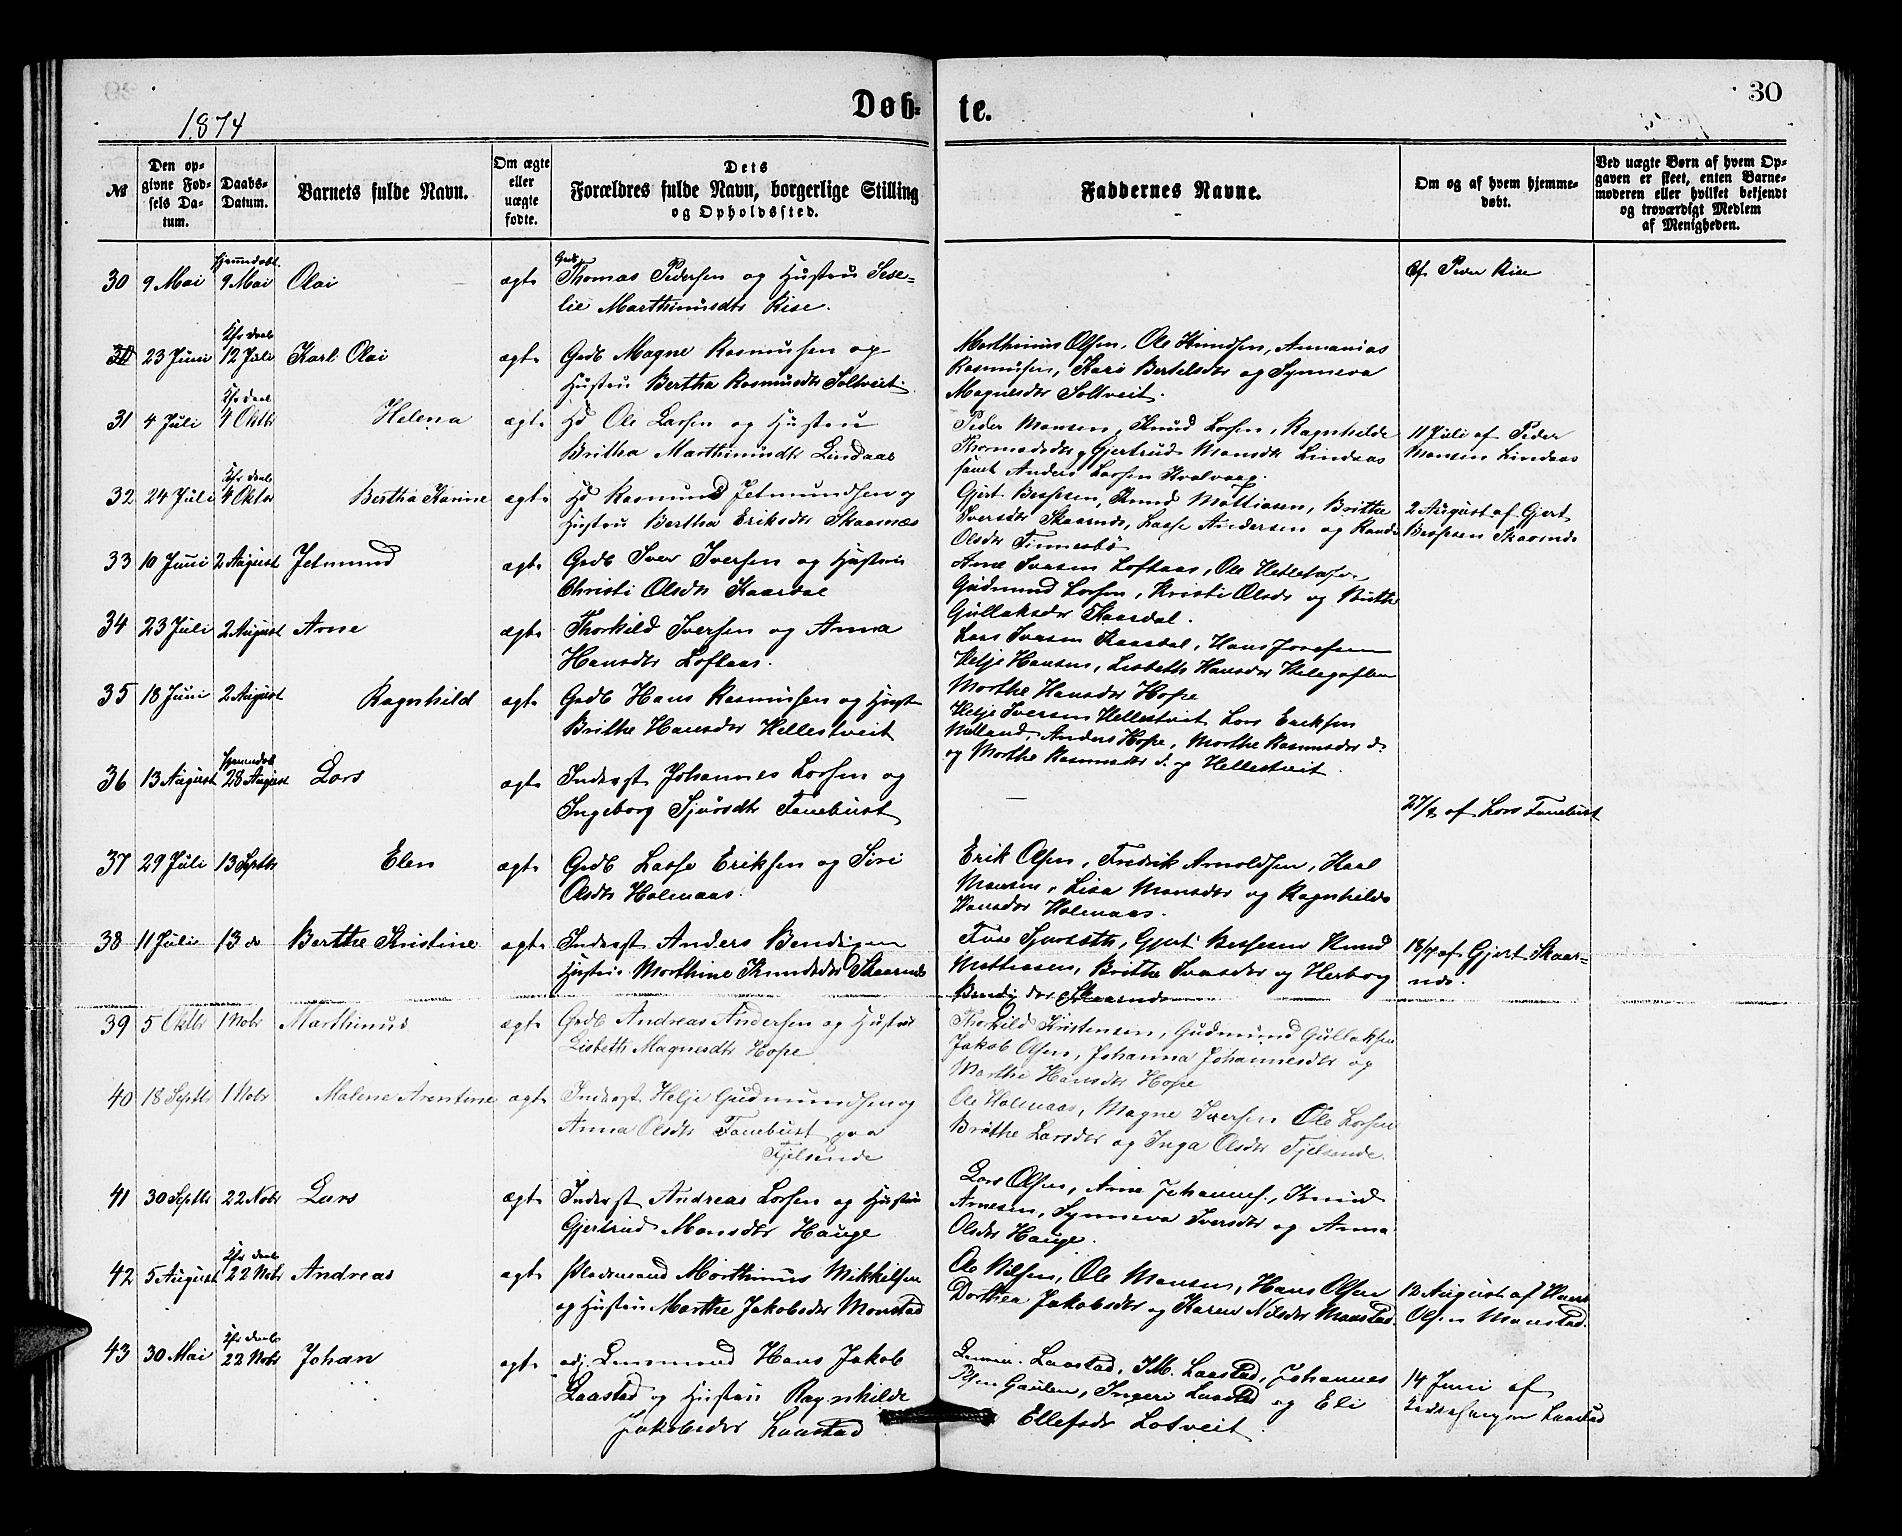 1874
Døb-
te.
30
№
Den op-
givne Fød-
sels Da-
tum.
Daabs-
Datum.
Barnets fulde Navn.
Om ægte
eller
uægte
fødte.
Dets
Forældres fulde Navn, borgerlige Stilling
og Opholdssted.
Faddernes Navne.
Om og af hvem hjemme-
døbt.
Ved uægte Børn af hvem Op-
gaven er skeet, enten Barne-
moderen eller hvilket bekjendt
og troværdigt Medlem
af Menigheden.
hjemmdøbt
30 9 Mai 9 Mai Olai ægte Thomas Pedersen og Hustru Sese-
lie Marthinusdtr Rise.
af Peder Rise
23 Juni 12 Juli Karl Olai ægte Grdb Magne Rasmussen og
Hustru Bertha Rasmusdtr Soltveit
Marthinus Olsen, Ole Knudsen, Annanias
Rasmussen, Kari Bertelsdtr og Synneva
Magnesdtr Soltveit.
31 4 Juli 4 Oktbr Helena ægte Hd Ole Larsen og Hustru
Britha Marthinusdtr Lindaas
Peder Monsen, Knud Larsen, Ragnhilde
Gjertrud Monsdtr Lindaas
samt Anders Larsen Kvalvaag.
11 Juli af Peder
Monsen Lindaas
32 24 Juli 4 Oktbr Bertha Karine ægte Hd Rasmund Jetmundsen og
Hustru Bertha Eriksdtr Skaarnæs
Gjert Bessesen, Knud Mathiasen, Brithe
Iversdtr Skaarnds, Lasse Andersen og
Olsdtr Finnesbø
2 August af Gjert
Bessesen Skaarnds
33 10 Juni 2 August Jetmund ægte Grdb Iver Iversen og Hustru
Christi Olsdtr Kaardal
Arne Iversen Loftaas, Ole
Gudmund Larsen, Kristi Olsdr og Brithe
Gullaksdtr Kaardal.
34 23 Juli 2 August Arne ægte Thorkild Iversen og Anna
Hansdtr Loftaas.
Lars Iversen Kaardal, Hans Josefsen
Helje Hansen, Lisbeth Hansdtr
Marthe Hansdtr Hope
35 18 Juni 2 August Ragnhild ægte Grdb Hans Rasmussen og Hustr
Brithe Hansdtr Hellestveit
Helje Iversen Hellestveit Lars Eriksen
Anders Hope, Marthe Rasmusdtr d.
og Marthe Rasmusdtr d. y Hellestveit.
hjemmedøbt
36 13 August 28 August Lars ægte Inderst Johannes Larsen og
Ingeborg Sjursdtr Fanebust
27/8 af Lars Fanebust
37 29 Juli 13 Septbr Elen ægte Grdb Lasse Eriksen og Siri
Olsdtr Holmaas.
Erik Olsen, Fredrik Arnoldsen, Karl
Monsen, Lisa Monsdtr og Ragnhilde
Hansdtr Holmaas.
38 11 Juli 13 do Berthe Kristine ægte Inderst Anders Bendixen
Hustru Marthine Knudsdtr Skaarnds
Gjert Bessesen Knud
Mathiasen, Brithe Iversdtr og Herborg
Skaarnds
18/7 af Gjert Skaar-
nds.
39 5 Oktbr 1 Nobr Marthinus ægte Grdb Andreas Andersen og Hustru
Lisbeth Magnesdtr Hope
Thorkild Kristensen, Gudmund Gullaksen
Jakob Olsen, Johanna Johannesdtr og
Marthe Hansdtr Hope
40 18 Septbr 1 Nobr Malene Arentine ægte Inderst Helje Gudmundsen og
Anna Olsdtr Fanebust paa
Fjelsende
Ole Holmaas, Magne Iversen Ole Larsen
Brithe Larsdtr og Inga Olsdtr Fjelsende.
41 30 Septbr 22 Nobr Lars ægte Inderst Andreas Larsen og Hustru
Gjertrud Monsdtr Hauge
Lars Olsen, Arne Johannes., Knud
Arnesen, Synneva Iversdtr og Anna
Olsdtr Hauge.
42 5 August 22 Nobr Andreas ægte Pladsmand Marthinus Mikkelsen
og Hustru Marthe Jakobsdtr Monstad
Ole Nilsen, Ole Monsen, Hans Olsen
Dorthea Jakobsdtr og Karen Nilsdtr Monstad
12 August af Hans
Olsen Monstad.
43 30 Mai 22 Nobr Johan ægte adj. Lensmand Hans Jakob
Laastad og Hustru Ragnhilde
Jakobsdtr Laastad
Laastad, Laastad, Johannes
Olsen Gaulen, Ingeri Laastad og Eli
Ellefsdtr Lotveit.
14 Juni af
Laastad